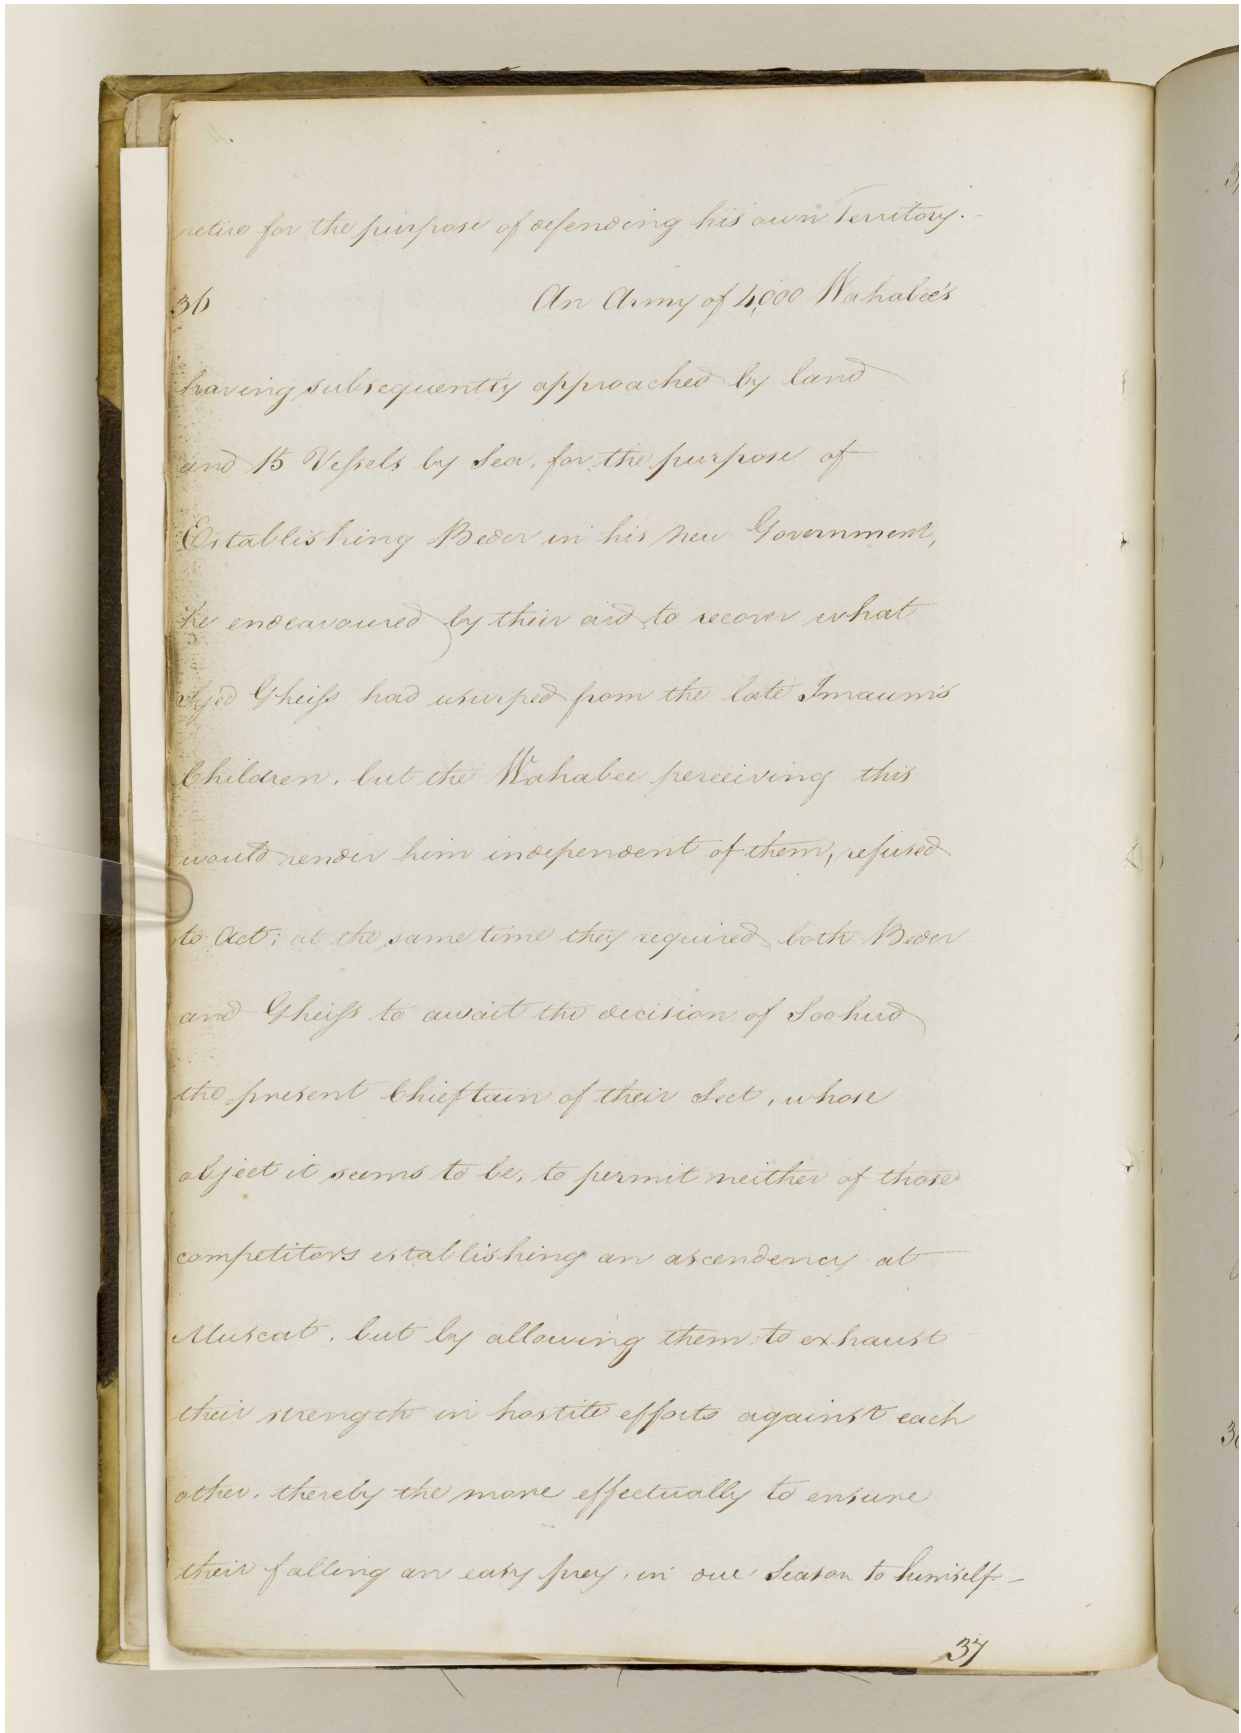 retire for the purpose of defending his own Territory.-
36 An Army of 4,000 Wahabee's
having subsequently approached by land
and 15 Vessels by Sea, for the purpose of
Establishing Beder in his new Government,
he endeavoured by their aid to recover what
Syed Gheiss had usurped from the late Imaum's
Children, but the Wahabee perceiving this
would render him independent of them, refused
to Act; at the same time they required both Beder
and Gheiss to await the decision of Soohud
the present Chieftain of their Sect, whose
object it seems to be, to permit neither of those
competitors establishing an ascendency at
Muscat, but by allowing them to exhaust
their strength in hostile efforts against each
other, thereby the more effectually to ensure
their falling an easy prey, in due Season to himself-
37